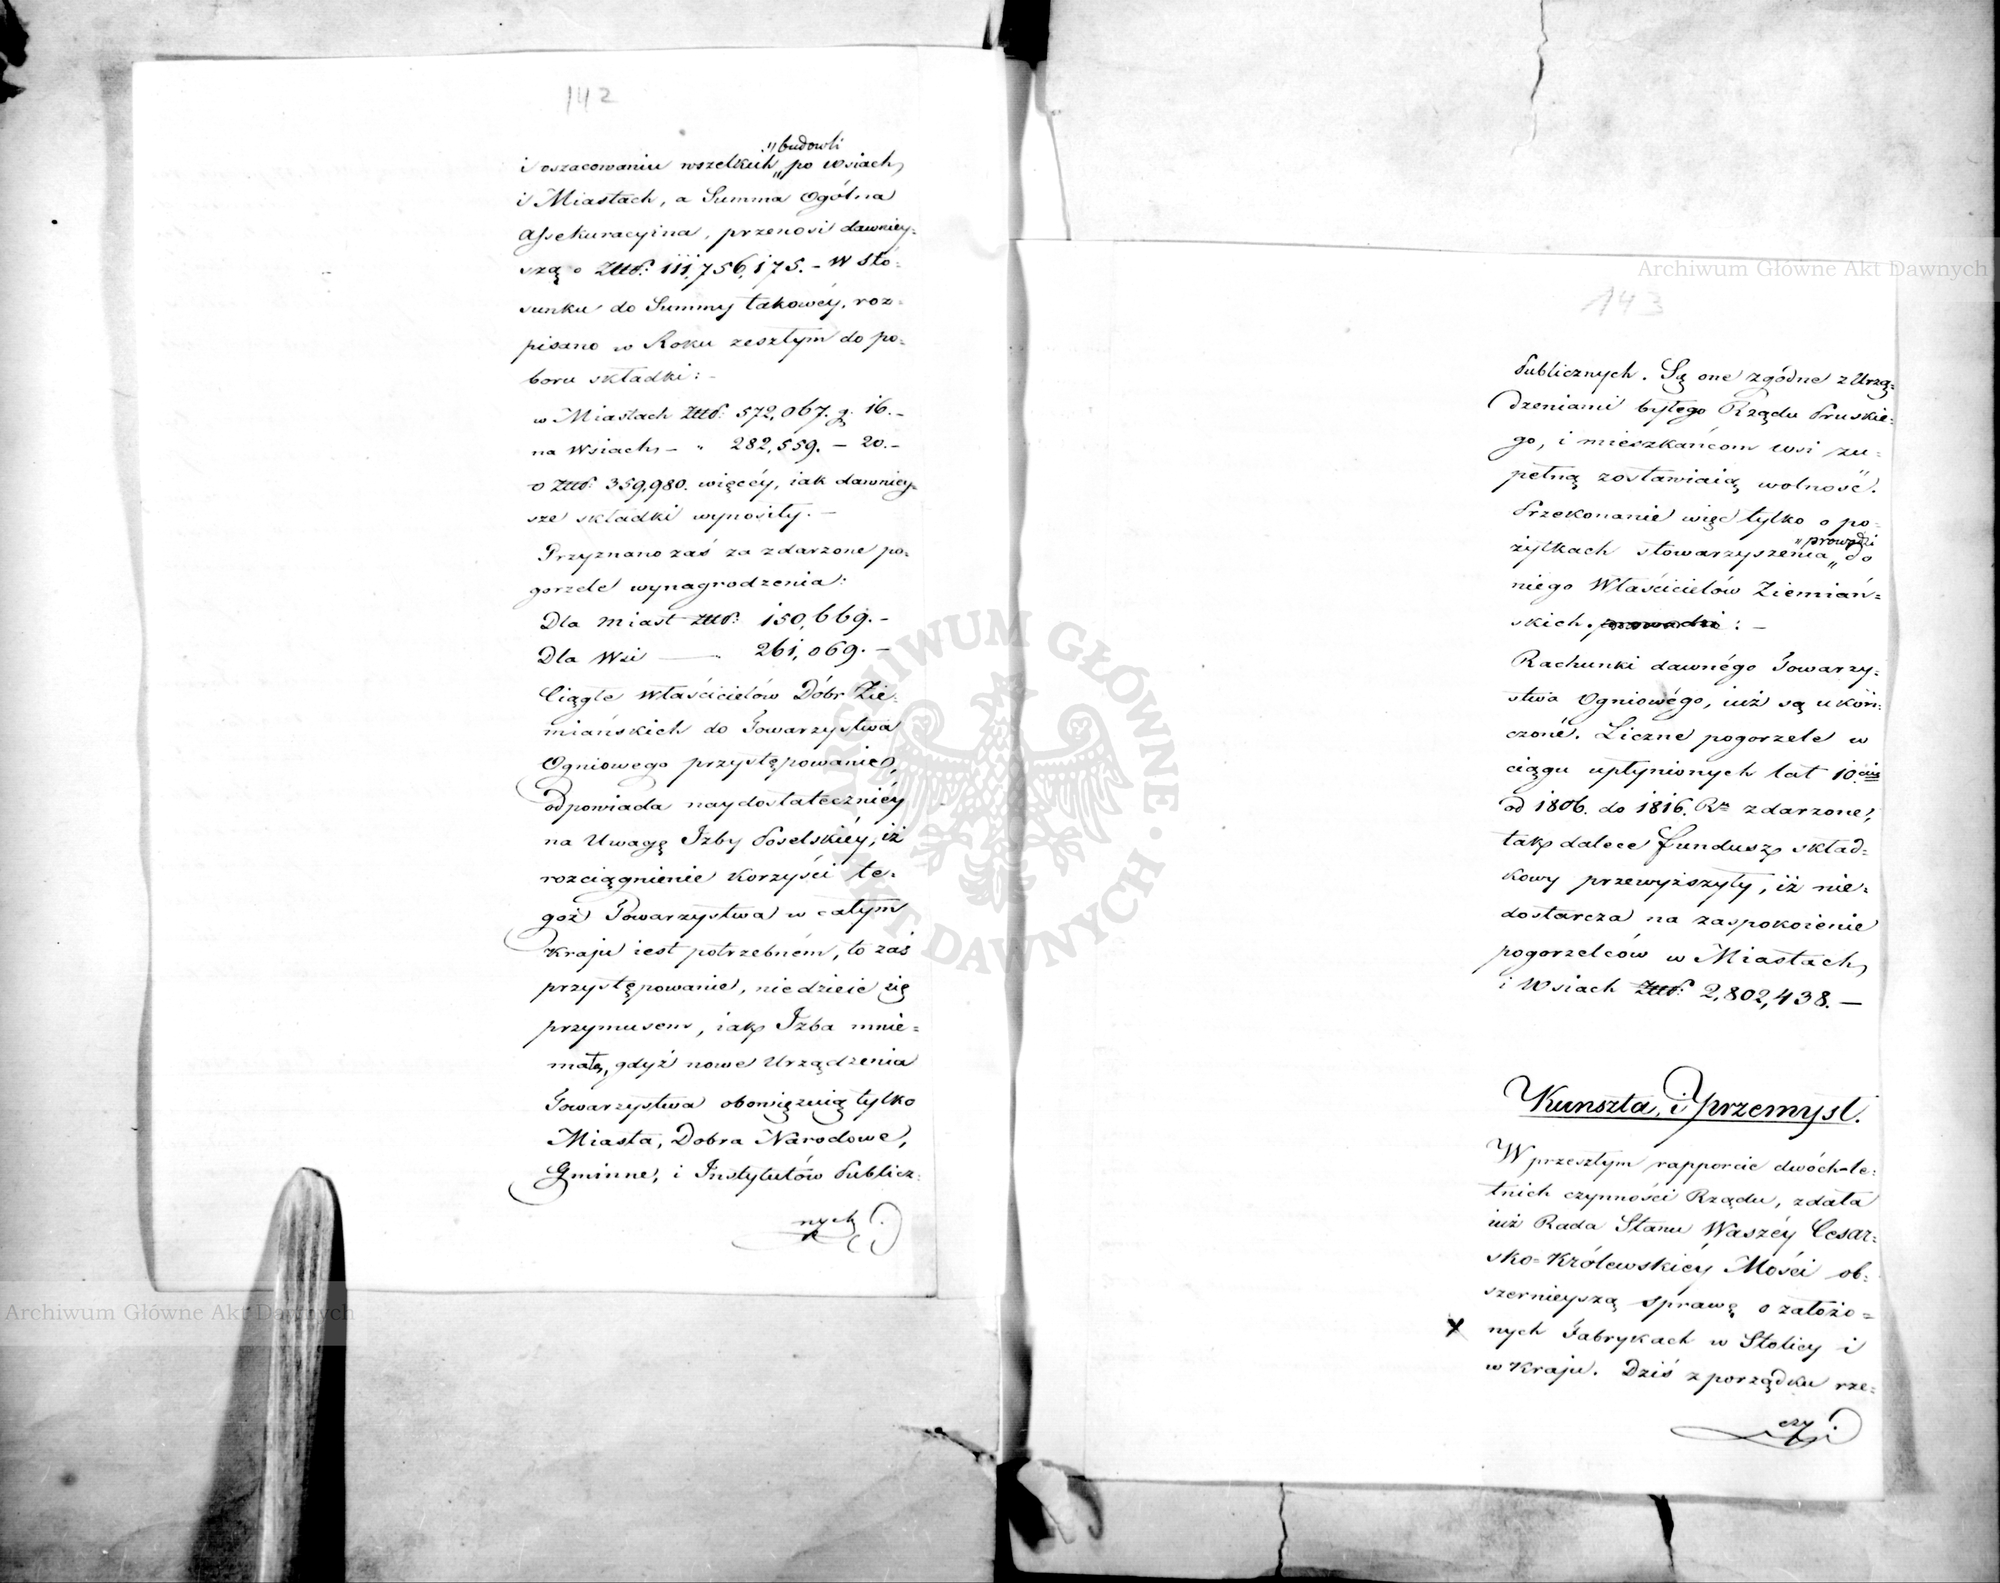 142
„budowli
i oszacowaniu wszelkich „ po wsiach
i Miastach, a Summa Ogólna
Assekuracyina, przenosi dawniey-
szą o Złlr: 111,756,175. – W sto-
sunku do Summy takowéy, roz-
pisano w Roku zeszłym do po-
boru składki: –
w Miastach Złlr: 572,067. g. 16. –
na Wsiach – „ 282,559. – 20. –
o Złlr: 359,980. więcéy, iak dawniey-
sze składki wynosiły. –
Przyznano zaś za zdarzone po-
gorzele wynagrodzenia:
Dla Miast Złlr: 150,669. –
Dla Wsi — „ 261,069. –
Ciągłe Właścicielów Dóbr Zie-
miańskich do Towarzystwa
Ogniowego przystępowanie,
odpowiada naydostateczniéy
na Uwagę Izby Poselskiéy, iż
rozciągnienie korzyści te-
goż Towarzystwa w całym
Kraju iest potrzebném, to zaś
przystępowanie, niedzieie się
przymusem, iak Izba mnie-
mała, gdyż nowe Urządzenia
Towarzystwa obowięzuią tylko
Miasta, Dobra Narodowe,
Gminne, i Instytutów Publicz-
nych
143
Publicznych. Są one zgódne z Urzą-
dzeniami byłego Rządu Pruskie-
go, i mieszkańcom wsi zu-
pełną zostawiaią wolność.
Przekonanie więc tylko o po-
„prowadzi
żytkach stowarzyszenia „ do
niego Właścicielów Ziemiań-
skich. prowadzi : –
Rachunki dawnégo Towarzy-
stwa Ogniowégo, iuż są ukoń-
czoné. Liczne pogorzele w
ciągu upłynionych lat 10.ciu
od 1806. do 1816. Ru zdarzone,
tak dalece fundusz skład-
kowy przewyższyły, iż nie-
dostarcza na zaspokoienie
pogorzelców w Miastach
i Wsiach Złlr: 2,802,438. –
Kunszta, i Przemysł.
W przeszłym rapporcie dwóch-le-
tnich czynności Rządu, zdała
iuż Rada Stanu Waszéy Cesar-
sko-Królewskiéy Mości ob-
szernieyszą sprawę o założo-
x nych Fabrykach w Stolicy i
w Kraju. Dziś z porządku rze-
czy
Archiwum Główne Akt Dawnych
Archiwum Główne Akt Dawnych
ARCHIWUM GŁÓWNE · AKT DAWNYCH ·